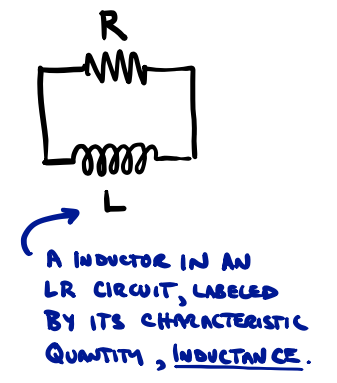 R
L
A INDUCTOR IN AN
LR CIRCUIT, LABELED
BY ITS CHARACTERISTIC
QUANTITY, INDUCTANCE.